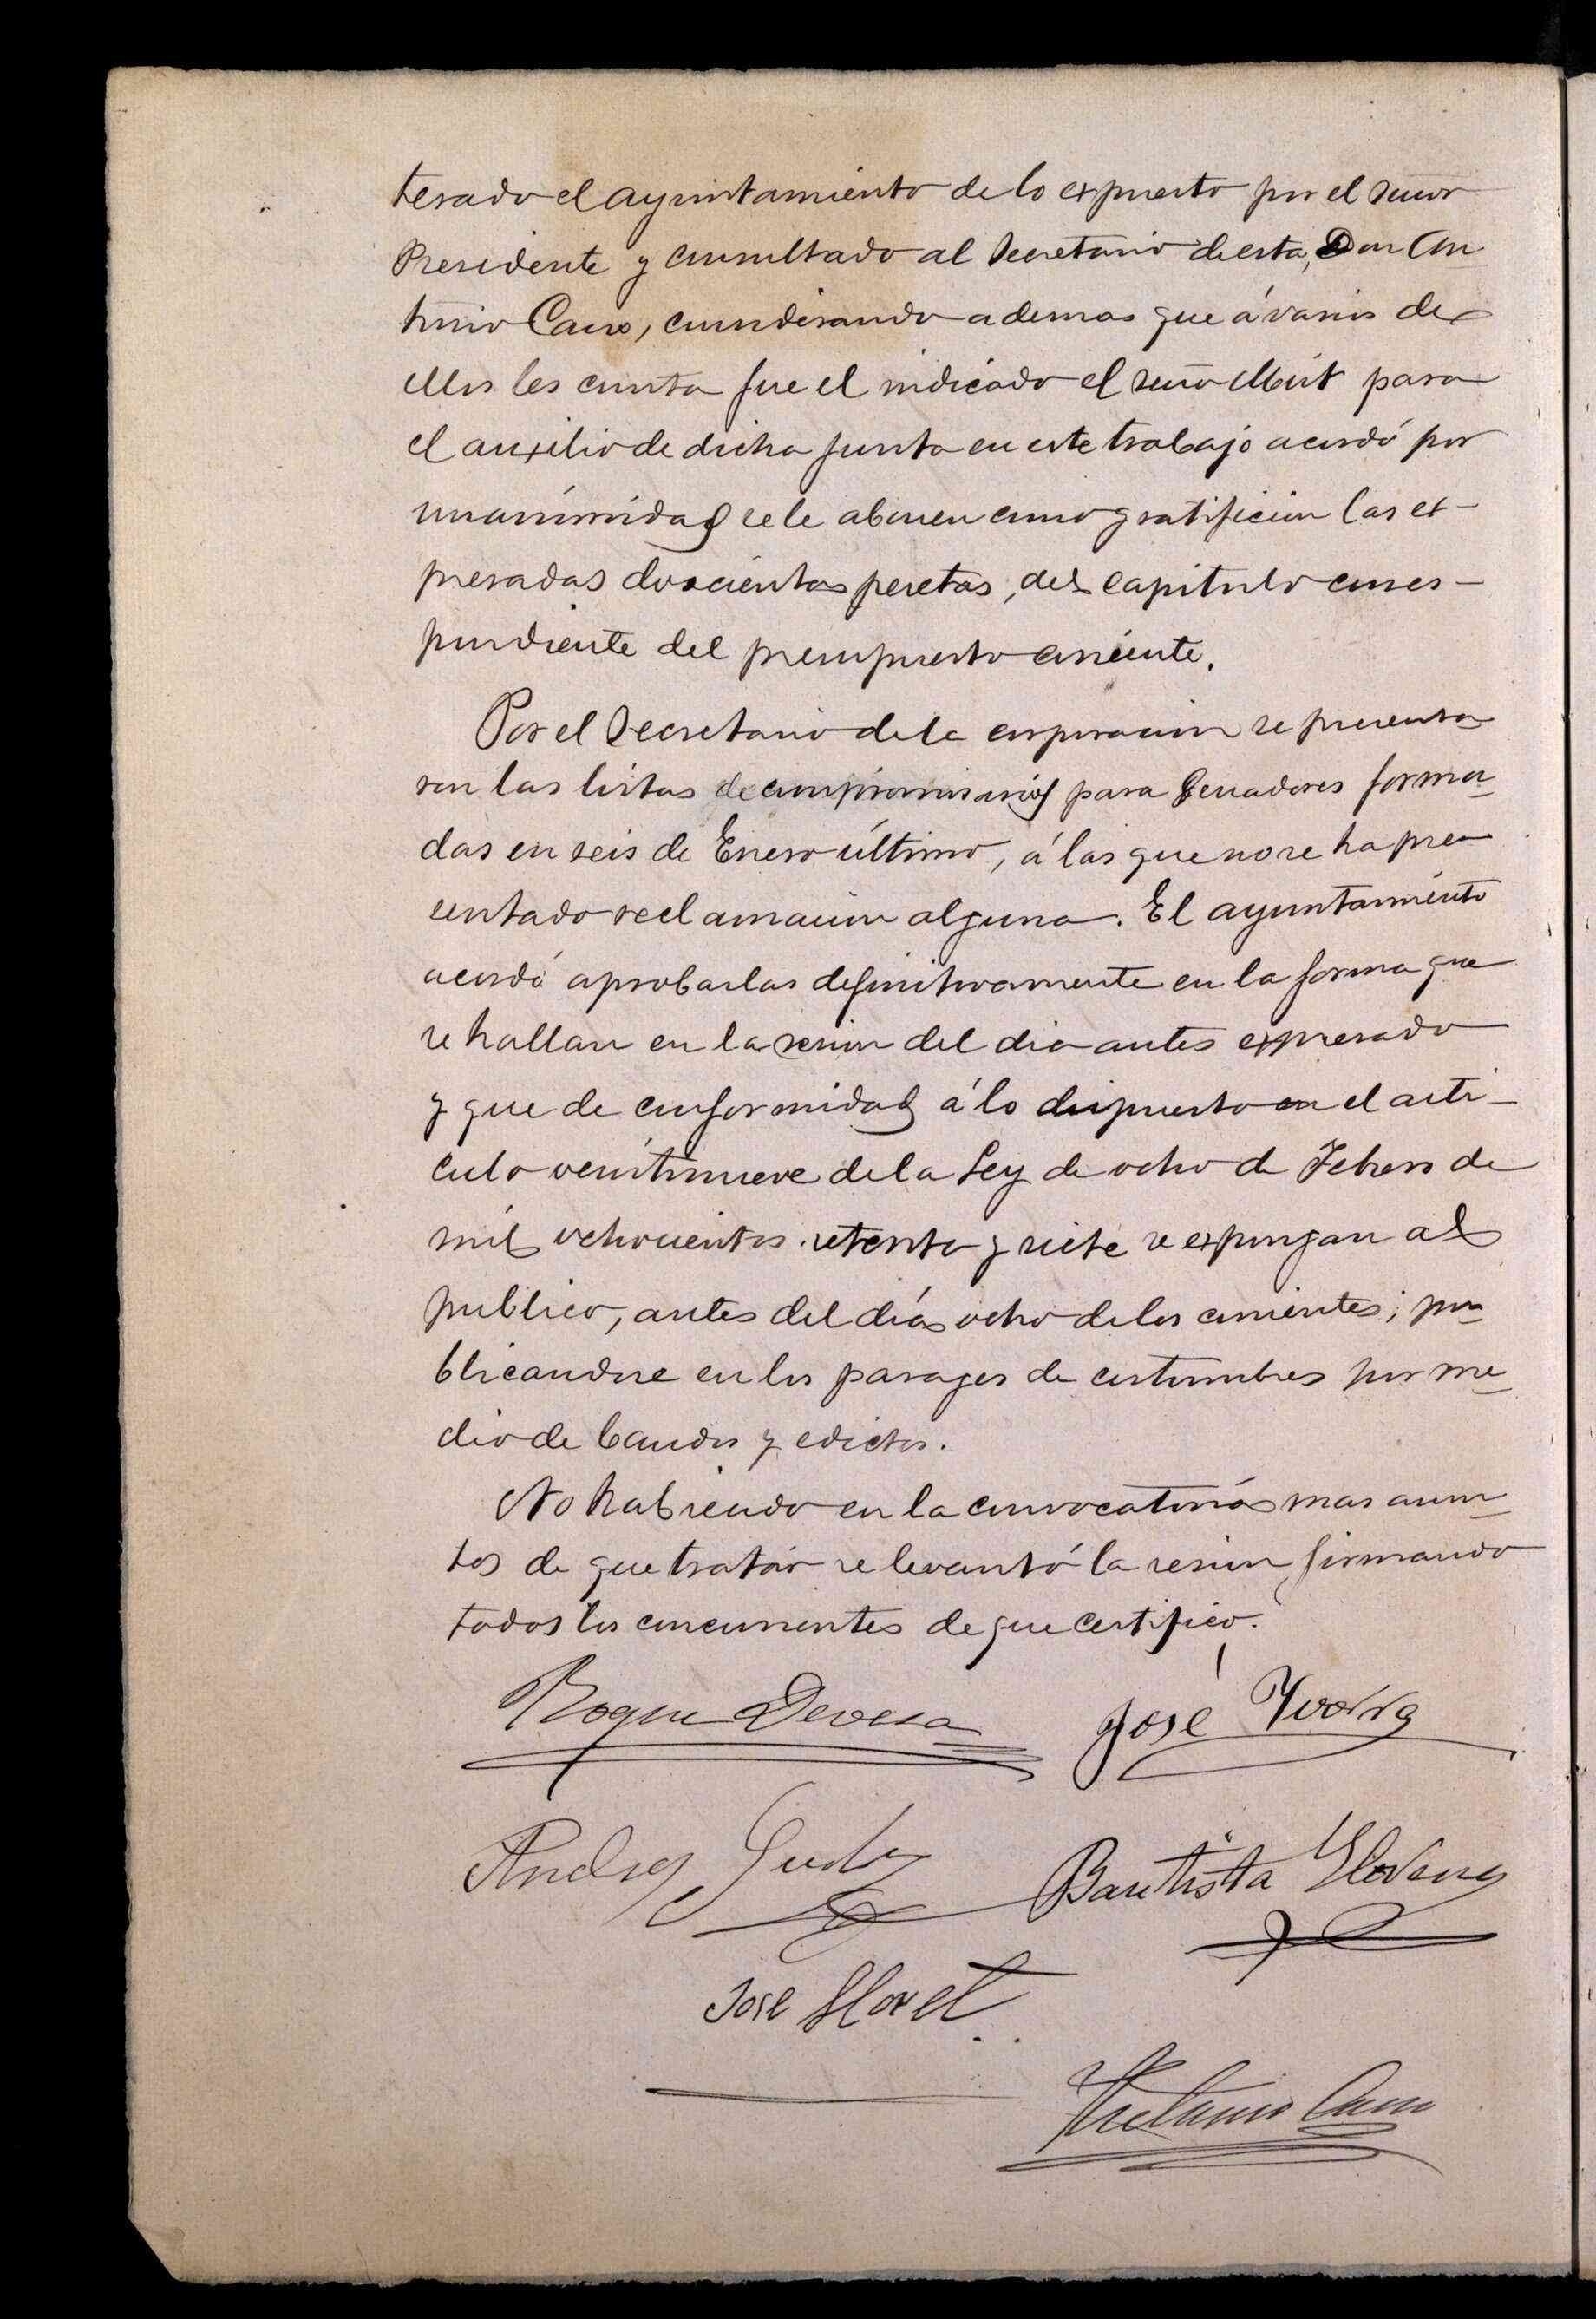 terado el ayuntamiento de lo expuesto por el señor
Presidente y consultado al Secretario de esta, Don An
tonio Cano, considerando ademas que á varios de
ellos les consta fue el indicado el señor Mut para
el auxilio de dicha Junta en este trabajo acordó por
unanimidad se le abonen como gratificion las ex-
presadas doscientas pesetas, del capitulo corres-
pondiente del presupuesto corriente.
Por el Secretario de la corporacion se presenta
ron las listas de compromisarios para Senadores forma
das en seis de Enero último, á las que no se ha pre
sentado reclamacion alguna. El ayuntamiento
acordó aprobarlas definitivamente en la forma que
se hallan en la sesion del dia antes expresado
y que de conformidad á lo dispuesto en el arti-
culo veintinueve de la Ley de ocho de Febrero de
mil ochocientos setenta y siete se expongan al
publico, antes del día ocho de los corrientes; pu
blicandose en los parages de costumbres por me
dio de bandos y edictos.
No habiendo en la convocatoria mas asun
tos de que tratar se levantó la sesion, firmando
todos los concurrentes de que certifico.
Roque Devesa José Yvorra
Andres Bautista Llorens
Jose Lloret
Antonio Cano